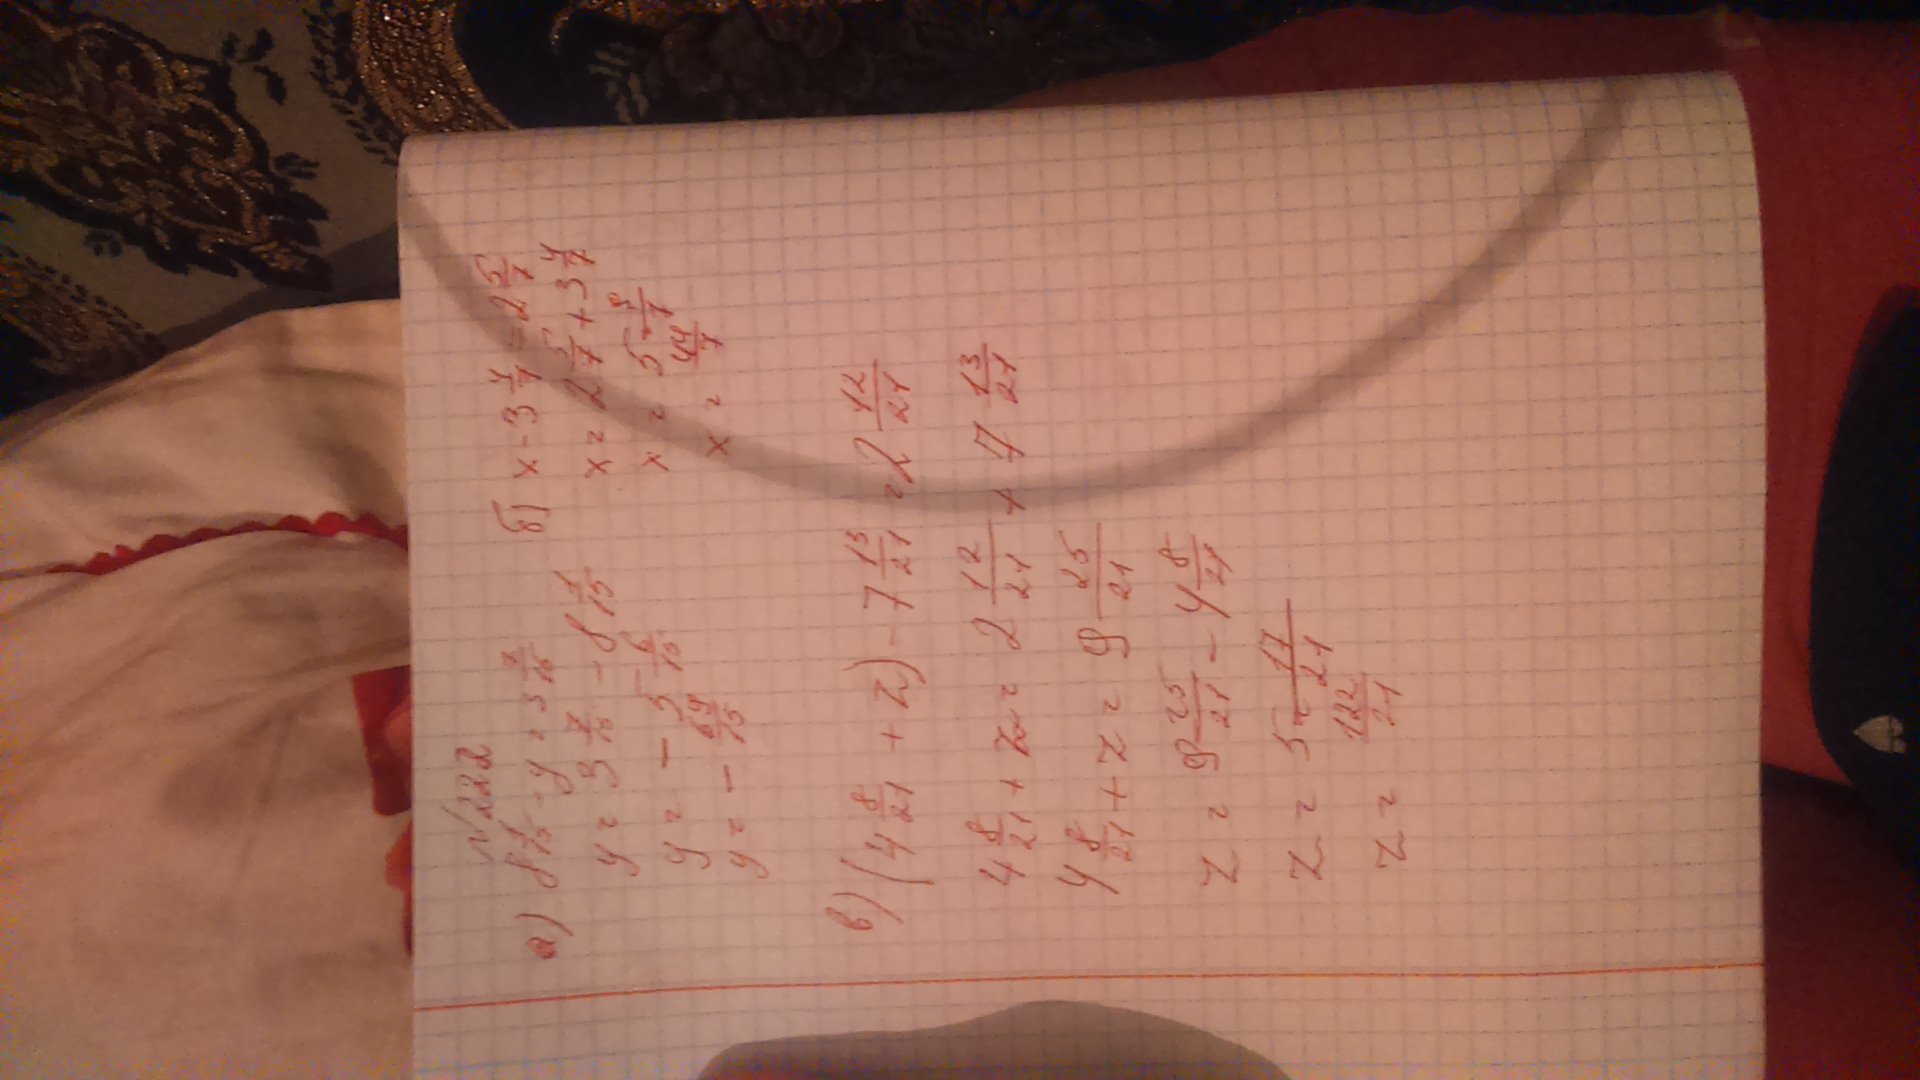 №222
а) 8 1/15 - y = 3 7/15
y = 3 7/15 - 8 1/15
y = - 5 6/15
y = - 69/15
б) x - 3 4/7 = 2 5/7
x = 2 5/7 + 3 4/7
x = 5 8/7
x = 44/7
в) (4 8/21 + z) - 7 13/21 = 2 12/21
4 8/21 + z = 2 12/21 + 7 13/21
4 8/21 + z = 9 25/21
z = 9 25/21 - 4 8/21
z = 5 17/21
z = 122/21